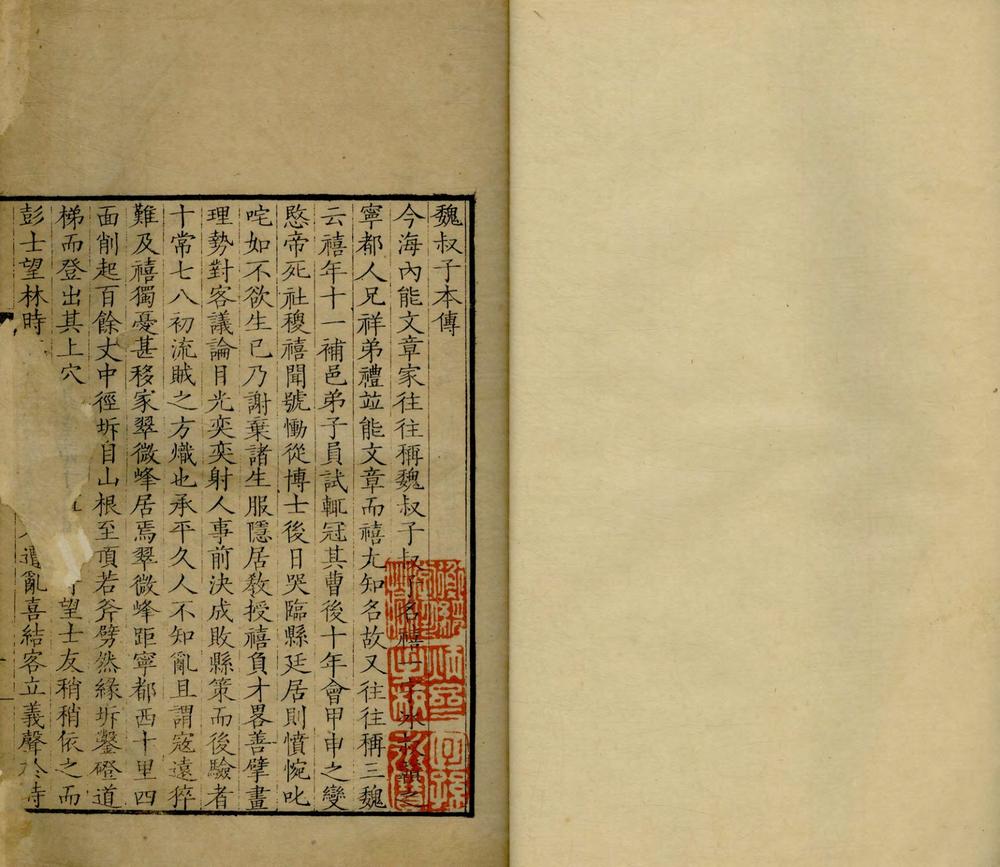 魏叔子本傳
今海內能文章家往往稱魏叔子叔子名禧一字冰叔贛之
寧都人兄祥弟禮竝能文章而禧尤知名故又往往稱三魏
云禧年十一補邑弟子員試輒冠其曹後十年會甲申之變
愍帝死社稷禧聞號慟從博士後日哭臨縣廷居則憤惋叱
咤如不欲生已乃謝棄諸生服隱居敎授禧負才畧善擘畫
理勢對客議論目光奕奕射人事前決成敗縣策而後驗者
十常七八初流賊之方熾也承平久人不知亂且謂寇遠猝
難及禧獨憂甚移家翠微峰居焉翠微峰距寧都西十里四
面削起百餘丈中徑坼自山根至頂若斧劈然緣坼鑿磴道
梯而登出其上穴望士友稍稍依之而
彭士望林時遭亂喜結客立義聲於時